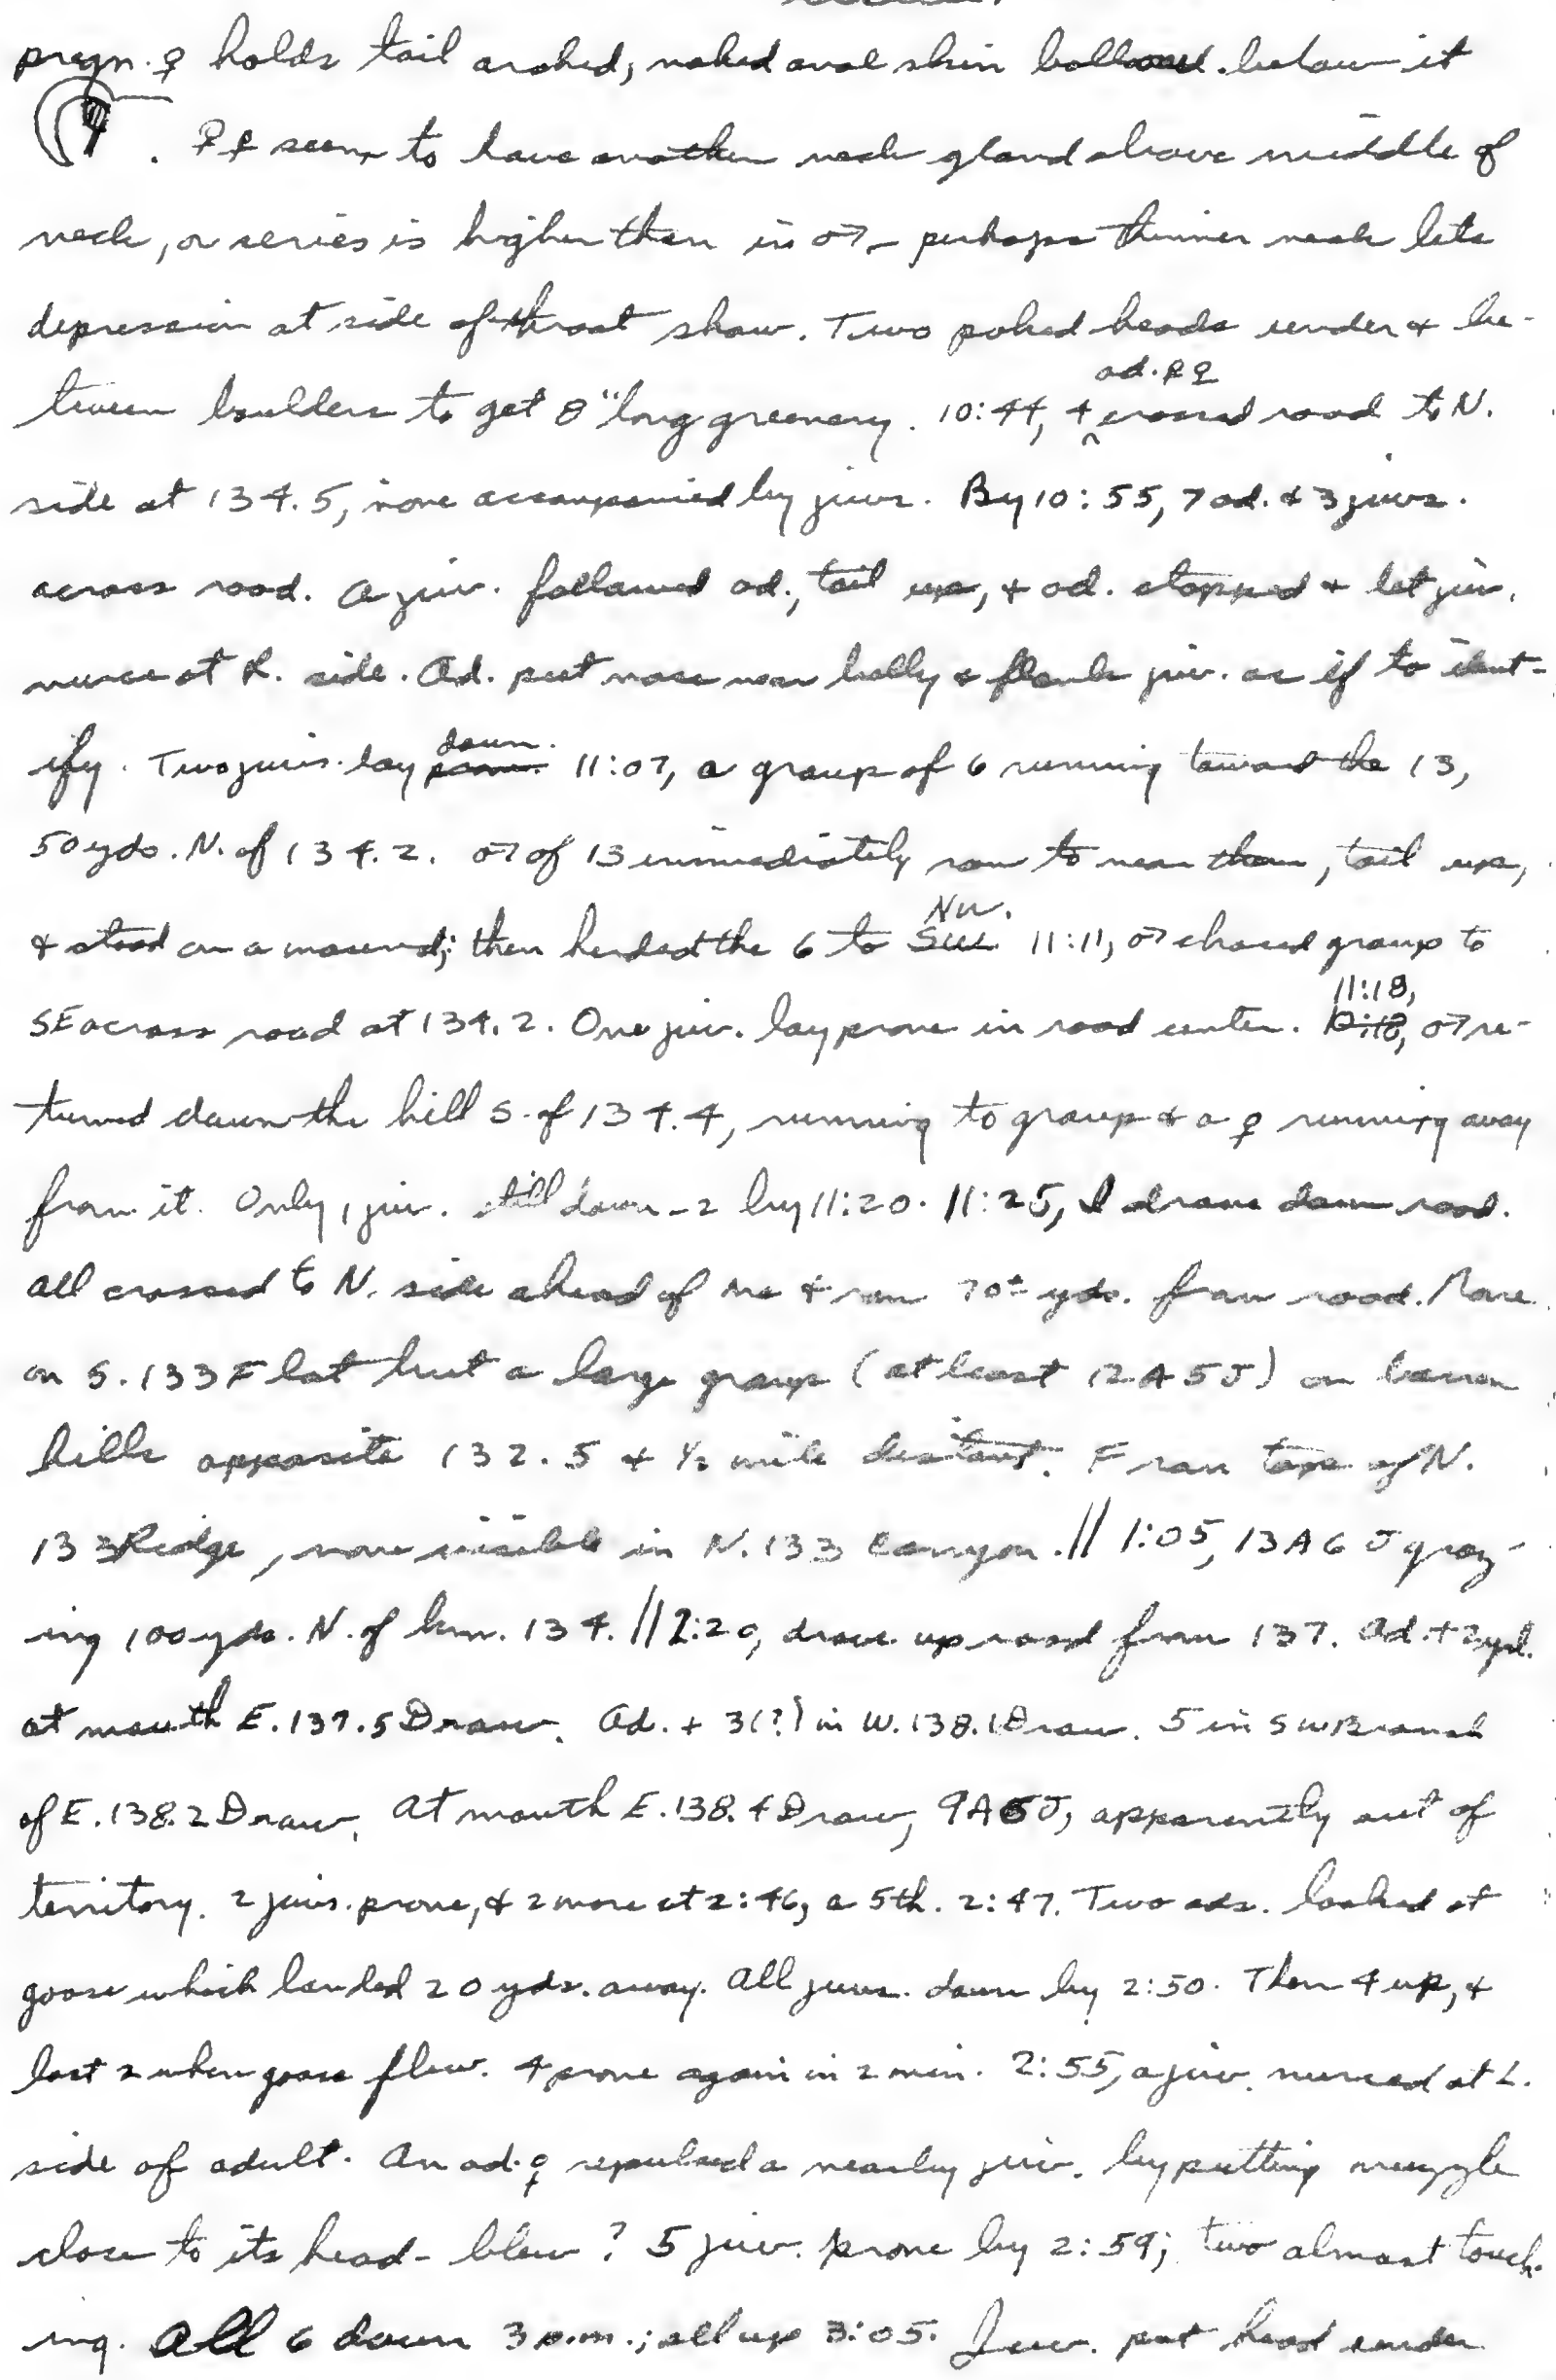 pregn. ♀ holds tail arched, naked anal skin below it
. ♀♀ seem to have another neck gland above middle of
neck, or series is higher than in ♂ - perhaps thinner neck lets
depression at side of throat show. Two poked heads under & be-
tween boulders to get 8" long greenery. 10:44, 4 ad. ♀♀ crossed road to N.
side at 134.5, none accompanied by juvs. By 10:55, 7 ad. & 3 juvs.
across road. A juv. followed ad., tail up, & ad. stopped & let juv.
nurse at R. side. Ad. put nose near belly & flank juv. as if to ident-
ify. Two juvs. lay down. 11:07, a group of 6 running toward the 13,
50 yds. N. of 134.2. ♂ of 13 immediately ran to near them, tail up,
& stood on a mound; then herded the 6 to NW. 11:11, ♂ chased group to
SE across road at 134.2. One juv. lay prone in road center. 11:18, ♂ re-
turned down the hill S. of 134.4, running to group & a ♀ running away
from it. Only 1 juv. still down - 2 by 11:20. 11:25, I drove down road.
All crossed to N. side ahead of me & ran 70± yds. from road. None
on S. 133 Flat but a large group (at least 12A 5J) on barren
hills opposite 132.5 & ½ mile distant. From top of N.
133 Ridge, none visible in N. 133 Canyon. // 1:05, 13A 6J graz-
ing 100 yds. N. of km. 134. // 2:20, drove up road from 137. Ad. +
at mouth E. 137.5 Draw. Ad. + 3(?) in W. 138.1 Draw. 5 in SW Branch
of E. 138.2 Draw. At mouth E. 138.4 Draw, 9A 6J, apparently out of
territory. 2 juvs. prone, & 2 more at 2:46, a 5th. 2:47. Two ads. looked at
goose which landed 20 yds. away. All juvs. down by 2:50. Then 4 up, &
last 2 when goose flew. 4 prone again in 2 min. 2:55, a juv. nursed at L.
side of adult. An ad. ♀ repulsed a nearby juv. by putting muzzle
close to its head - blew? 5 juv. prone by 2:59; two almost touch-
ing. All 6 down 3 p.m.; all up 3:05. Juv. put head under